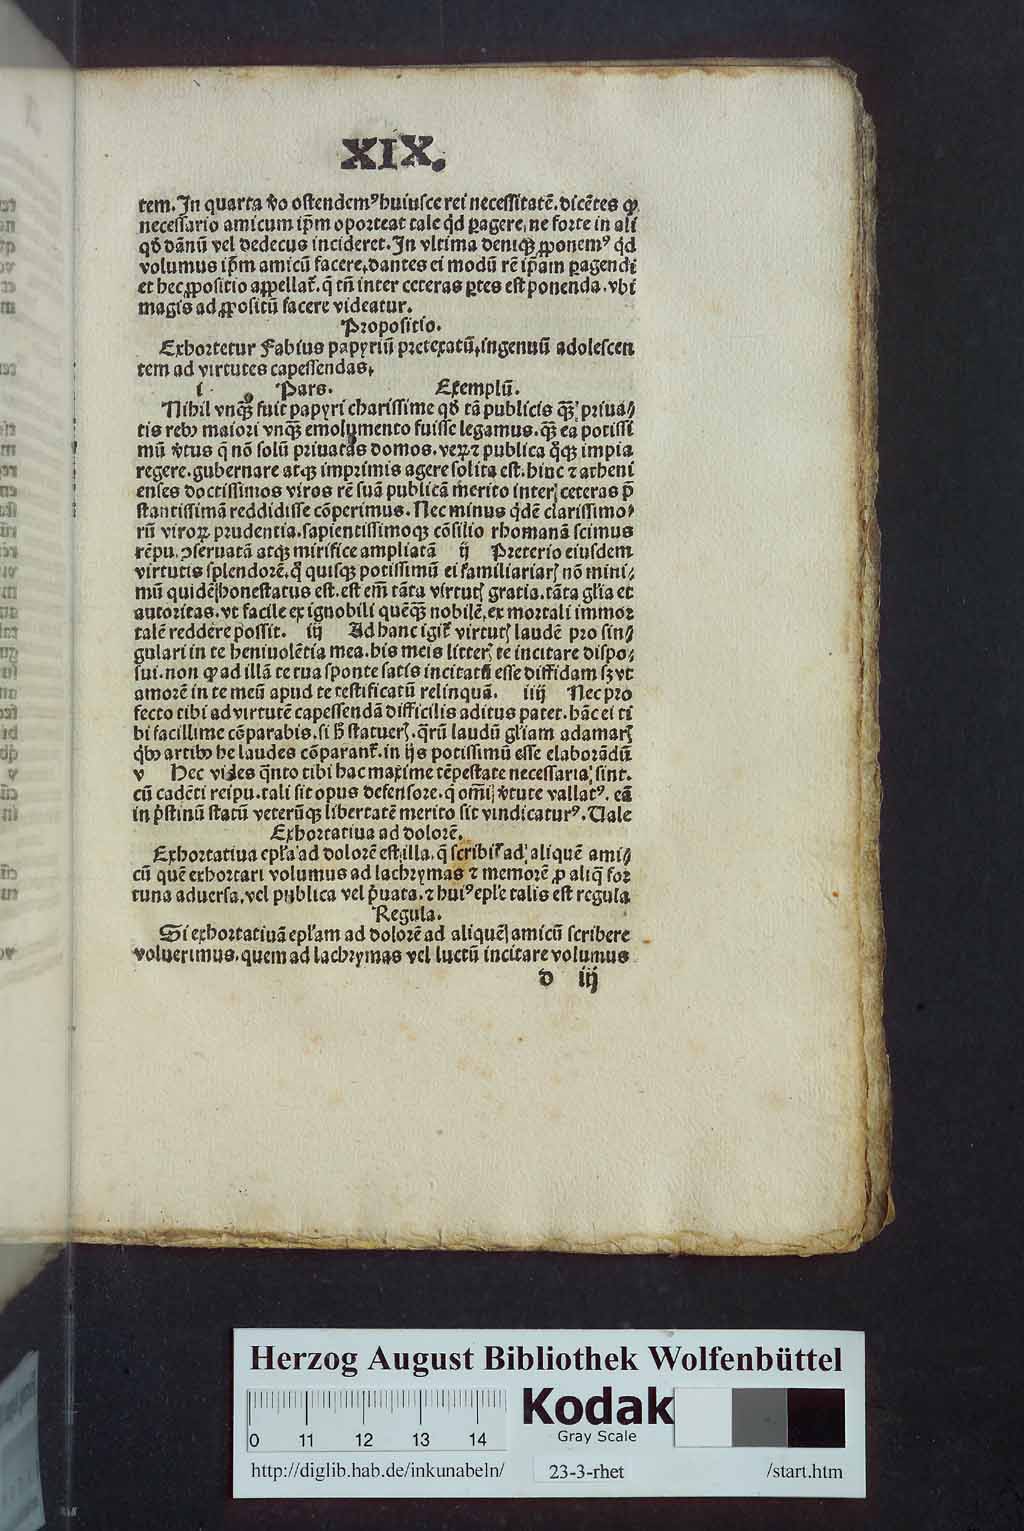 XIX.
tem. In quarta v̾o ostendemꝰ huiusce rei necessitatē. dicētes ꝙ
necessario amicum ip̄m oporteat tale qd̓ ꝑagere, ne forte in ali
qd̓ dānū vel dedecus incideret. In vltima deniqꝫ ꝓponemꝰ qd̓
volumus ip̄m amicū facere, dantes ei modū rē ip̄am ꝑagendi
et hec ꝓpositio appellat᷑. q̄ tn̄ inter ceteras ꝑtes est ponenda. vbi
magis ad ꝓpositū facere videatur.
Propositio.
Exhortetur Fabius papyriū pretextatū, ingenuū adolescen
tem ad virtutes capessendas,
i Pars. Exemplū.
Nihil vnqꝫ̄ fuit papyri charissime qd̓ tā publicis qꝫ̄ priua⸗
tis rebꝰ maiori vnqꝫ̄ emolumento fuisse legamus. qꝫ̄ ea potissi
mū v̾tus q̄ nō solū priuatas domos. veꝝ ⁊ publica qͦqꝫ impia
regere. gubernare atqꝫ imprimis agere solita est. hinc ⁊ atheni
enses doctissimos viros rē suā publicā merito inter ceteras p̄
stantissimā reddidisse cōperimus. Nec minus qͥdē clarissimo⸗
rū viroꝝ prudentia. sapientissimoqꝫ cōsilio rhomanā scimus
rēpu. ꝯseruatā atqꝫ mirifice ampliatā ij Preterio eiusdem
virtutis splendorē, qͦ quisqꝫ potissimū ei familiariaꝭ nō mini⸗
mū quidē honestatus est. est em̄ tāta virtutꝭ gratia. tāta gl̓ia et
autoritas. vt facile ex ignobili quēqꝫ̄ nobilē, ex mortali immor
talē reddere possit. iij Ad hanc igit᷑ virtutꝭ laudē pro sin⸗
gulari in te beniuolētia mea. his meis litterꝭ te incitare dispo⸗
sui. non ꝙ ad illā te tua sponte satis incitatū esse diffidam sꝫ vt
amorē in te meū apud te testificatū relinquā. iiij Nec pro
fecto tibi ad virtutē capessendā difficilis aditus patet. hāc ei ti
bi facillime cōparabis. si h̄ statuerꝭ. q̄rū laudū gl̓iam adamarꝭ
qͥbꝰ artibꝰ he laudes cōparant᷑. in ijs potissimū esse elaborādū
v Hec vides qͣnto tibi hac maxime tēpestate necessaria sint.
cū cadēti reipu. tali sit opus defensore. q̄ om̄i v̾tute vallatꝰ. eā
in pͥstinū statū veterūqꝫ libertatē merito sit vindicaturꝰ. Uale
Exhortatiua ad dolorē.
Exhortatiua epl̓a ad dolorē est illa. q̄ scribit᷑ ad aliquē ami⸗
cū quē exhortari volumus ad lachrymas ⁊ memorē ꝓ aliq̄ for
tuna aduersa, vel publica vel pͥuata. ⁊ huiꝰ epl̓e talis est regula
Regula.
Si exhortatiuā epl̓am ad dolorē ad aliquē amicū scribere
voluerimus. quem ad lachrymas vel luctū incitare volumus
d iij
Herzog August Bibliothek Wolfenbüttel
0 11 12 13 14
Kodak
Gray Scale
http://diglib.hab.de/inkunabeln/ 23-3-rhet /start.htm